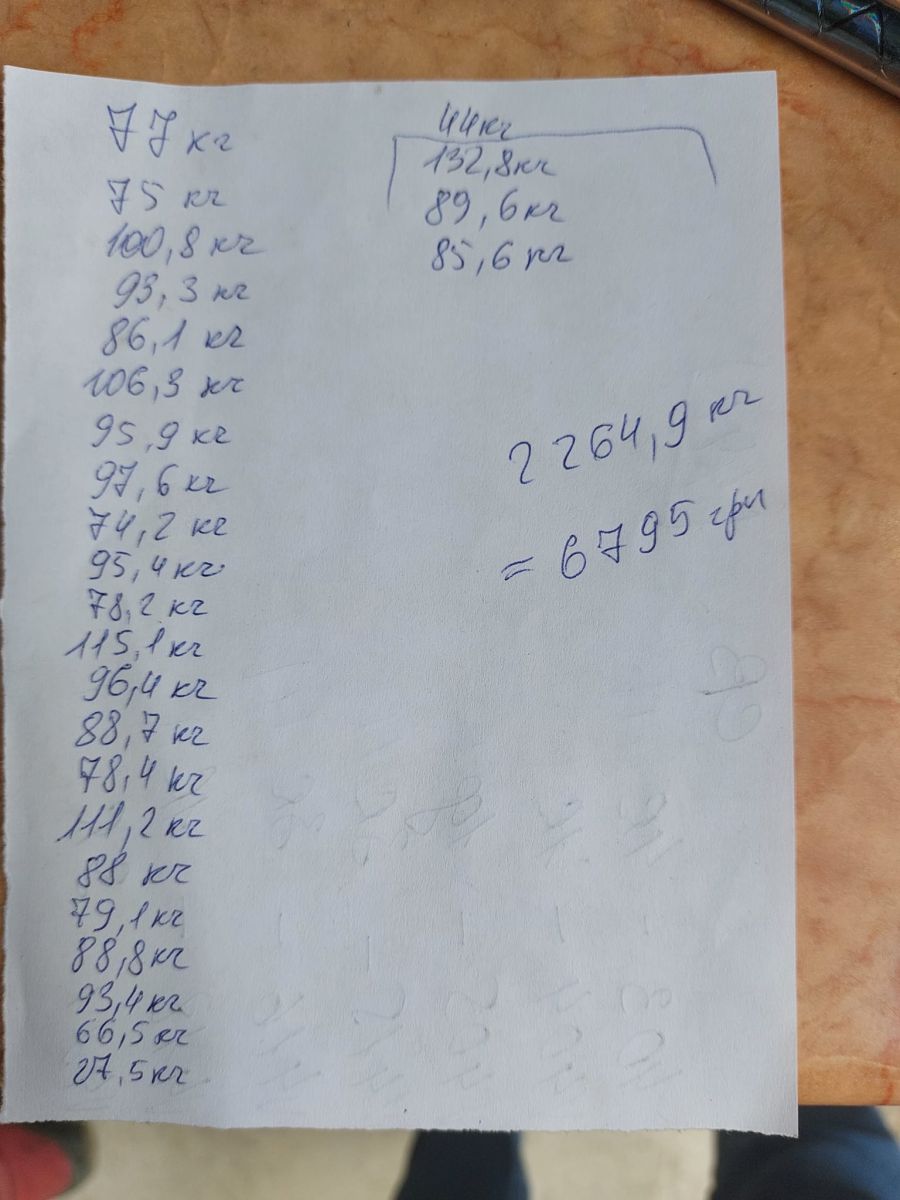 77 кг
75 кг
100,8 кг
93,3 кг
86,1 кг
106,3 кг
95,9 кг
97,6 кг
74,2 кг
95,4 кг
78,2 кг
115,1 кг
96,4 кг
88,7 кг
78,4 кг
111,2 кг
88 кг
79,1 кг
88,8 кг
93,4 кг
66,5 кг
27,5 кг
44 кг
132,8 кг
89,6 кг
85,6 кг
2264,9 кг
≈ 6795 грн